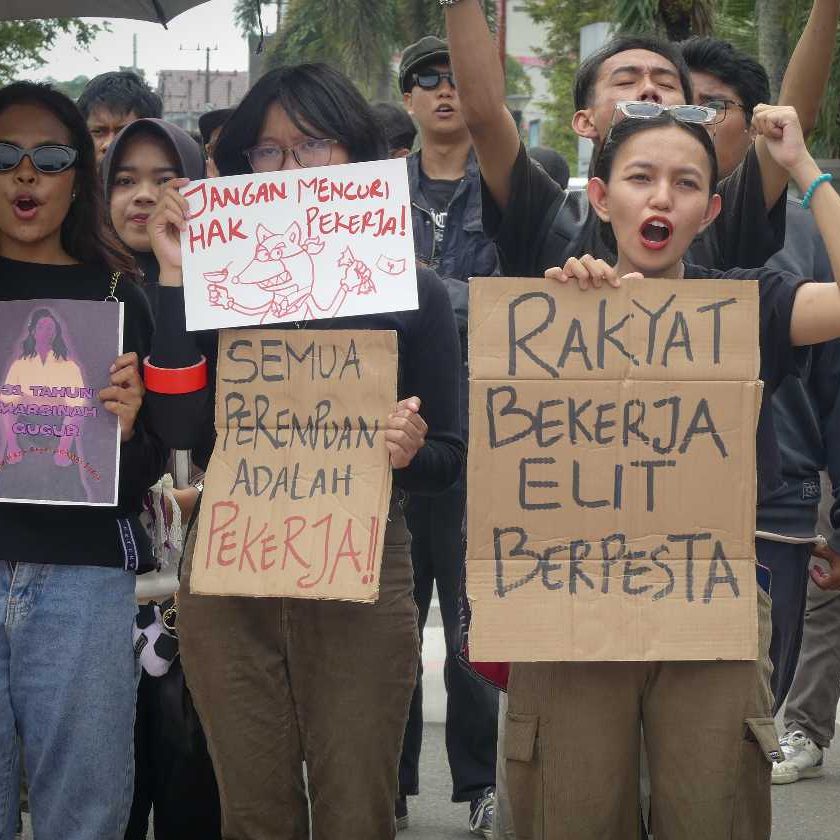 JANGAN MENCURI
HAK PEKERJA!
SEMUA
PEREMPUAN
ADALAH
PEKERJA!!
RAKYAT
BEKERJA
ELIT
BERPESTA
31 TAHUN
MARSINAH
GUGUR